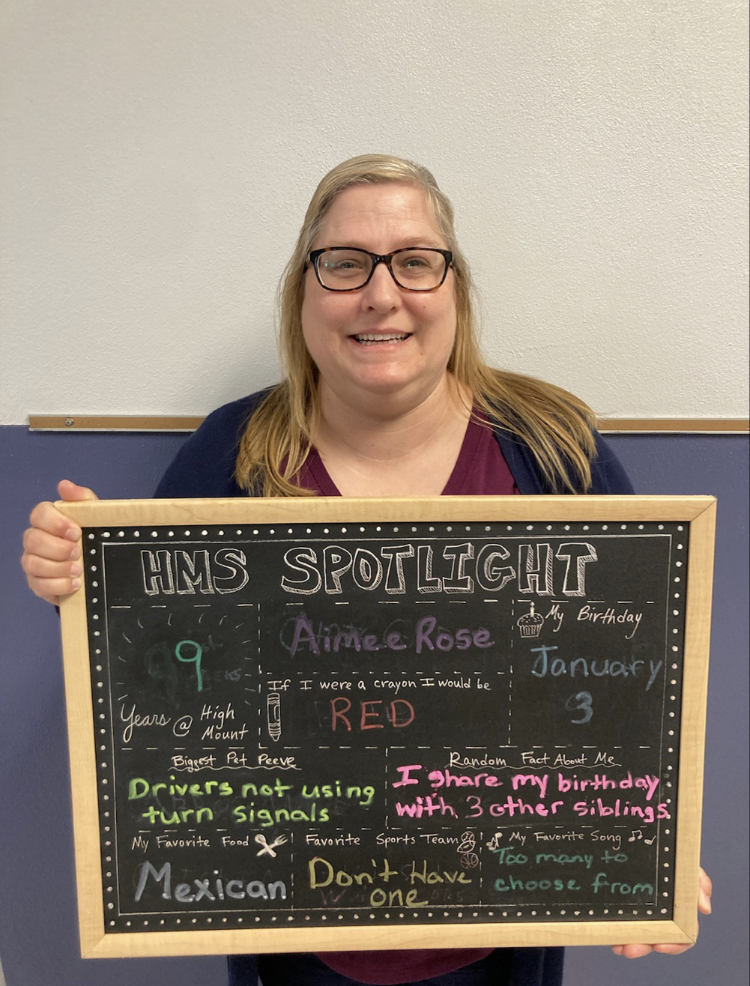 HMS SPOTLIGHT
9
Years @ High Mount
Aimee Rose
If I were a crayon I would be
RED
My Birthday
January
3
Biggest Pet Peeve
Drivers not using
turn signals
Random Fact About Me
I share my birthday
with 3 other siblings.
My Favorite Food
Mexican
Favorite Sports Team
Don't Have
one
My Favorite Song
Too many to
choose from